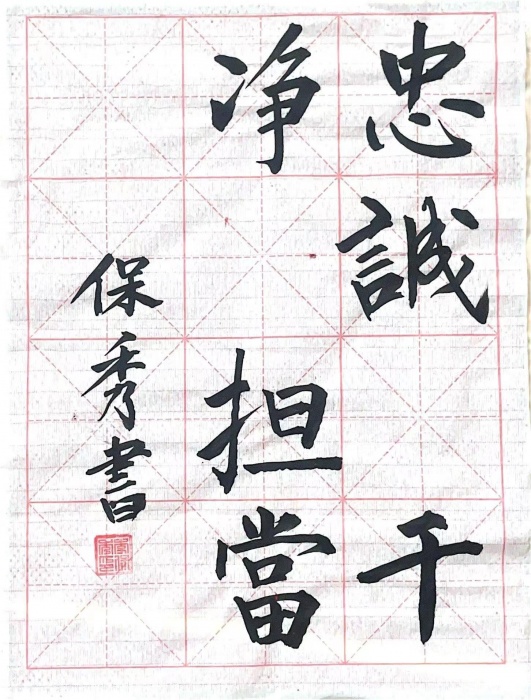 忠誠 干
净 担當
保秀書